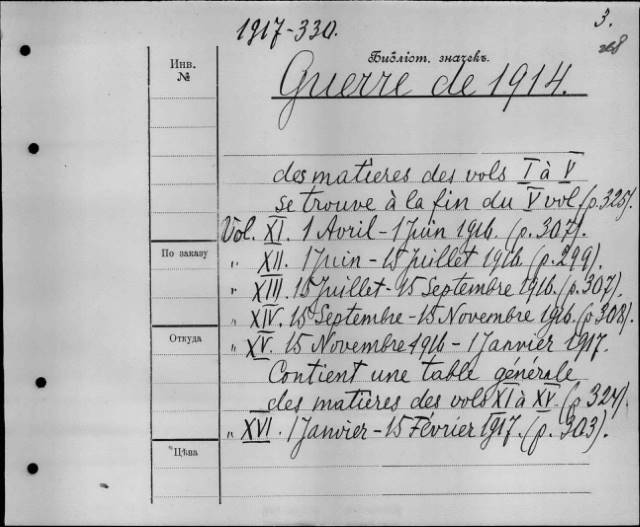 1917-330.
3.
Инв.
№
Библіот. значекъ.
Guerre de 1914.
des matieres des vols I à V
se trouve à la fin du V vol. (p. 325).
Vol. XI. 1 Avril - 1 Juin 1916. (p. 307).
" XII. 1 Juin - 15 Juillet 1916. (p. 299).
" XIII. 15 Juillet - 15 Septembre 1916. (p. 307).
По заказу
" XIV. 15 Septembre - 15 Novembre 1916. (p. 308).
Откуда
" XV. 15 Novembre 1916 - 1 Janvier 1917.
Contient une table générale
des matières des vols XI à XV. (p. 327).
" XVI. 1 Janvier - 15 Février 1917. (p. 303).
Цѣна